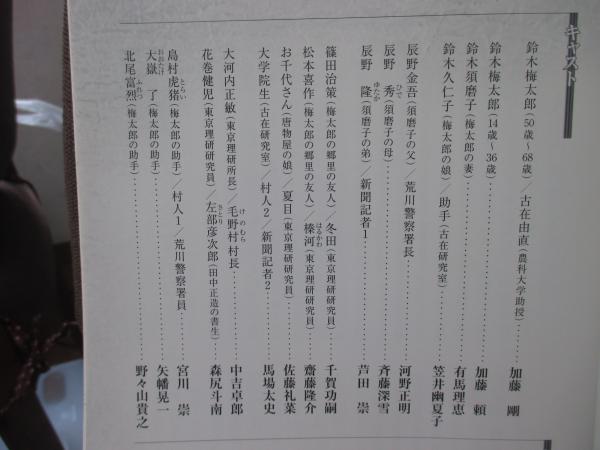 キャスト
鈴木梅太郎(50歳～68歳)／古在由直(農科大学助授) 加藤 剛
鈴木梅太郎(14歳～36歳) 加藤 頼
鈴木須磨子(梅太郎の妻) 有馬理恵
鈴木久仁子(梅太郎の娘)／助手(古在研究室) 笠井幽夏子
辰野金吾(須磨子の父)／荒川警察署長 河野正明
辰野 秀(須磨子の母) 斉藤深雪
辰野 隆(須磨子の弟)／新聞記者1 芦田 崇
篠田治策(梅太郎の郷里の友人)／冬田(東京理研研究員) 千賀功嗣
松本喜作(梅太郎の郷里の友人)／榛河(東京理研研究員) 齋藤隆介
お千代さん(唐物屋の娘)／夏目(東京理研研究員) 佐藤礼菜
大学院生(古在研究室)／村人2／新聞記者2 馬場太史
大河内正敏(東京理研所長)／毛野村村長 中吉卓郎
花巻健児(東京理研研究員)／左部彦次郎(田中正造の書生) 森尻斗南
島村虎猪(梅太郎の助手)／村人1／荒川警察署員 宮川 崇
大嶽 了(梅太郎の助手) 矢幡晃一
北尾富烈(梅太郎の助手) 野々山貴之